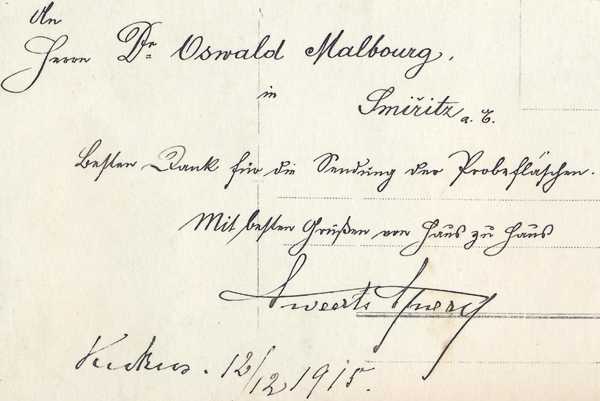 An
Herrn Dr. Oswald Malbourg,
in
Smiřitz a. E.
Besten Dank für die Sendung der Probefläschen.
Mit besten Grüßen von Haus zu Haus
Sweerts Sporck
Kukus. 12/12 1915.